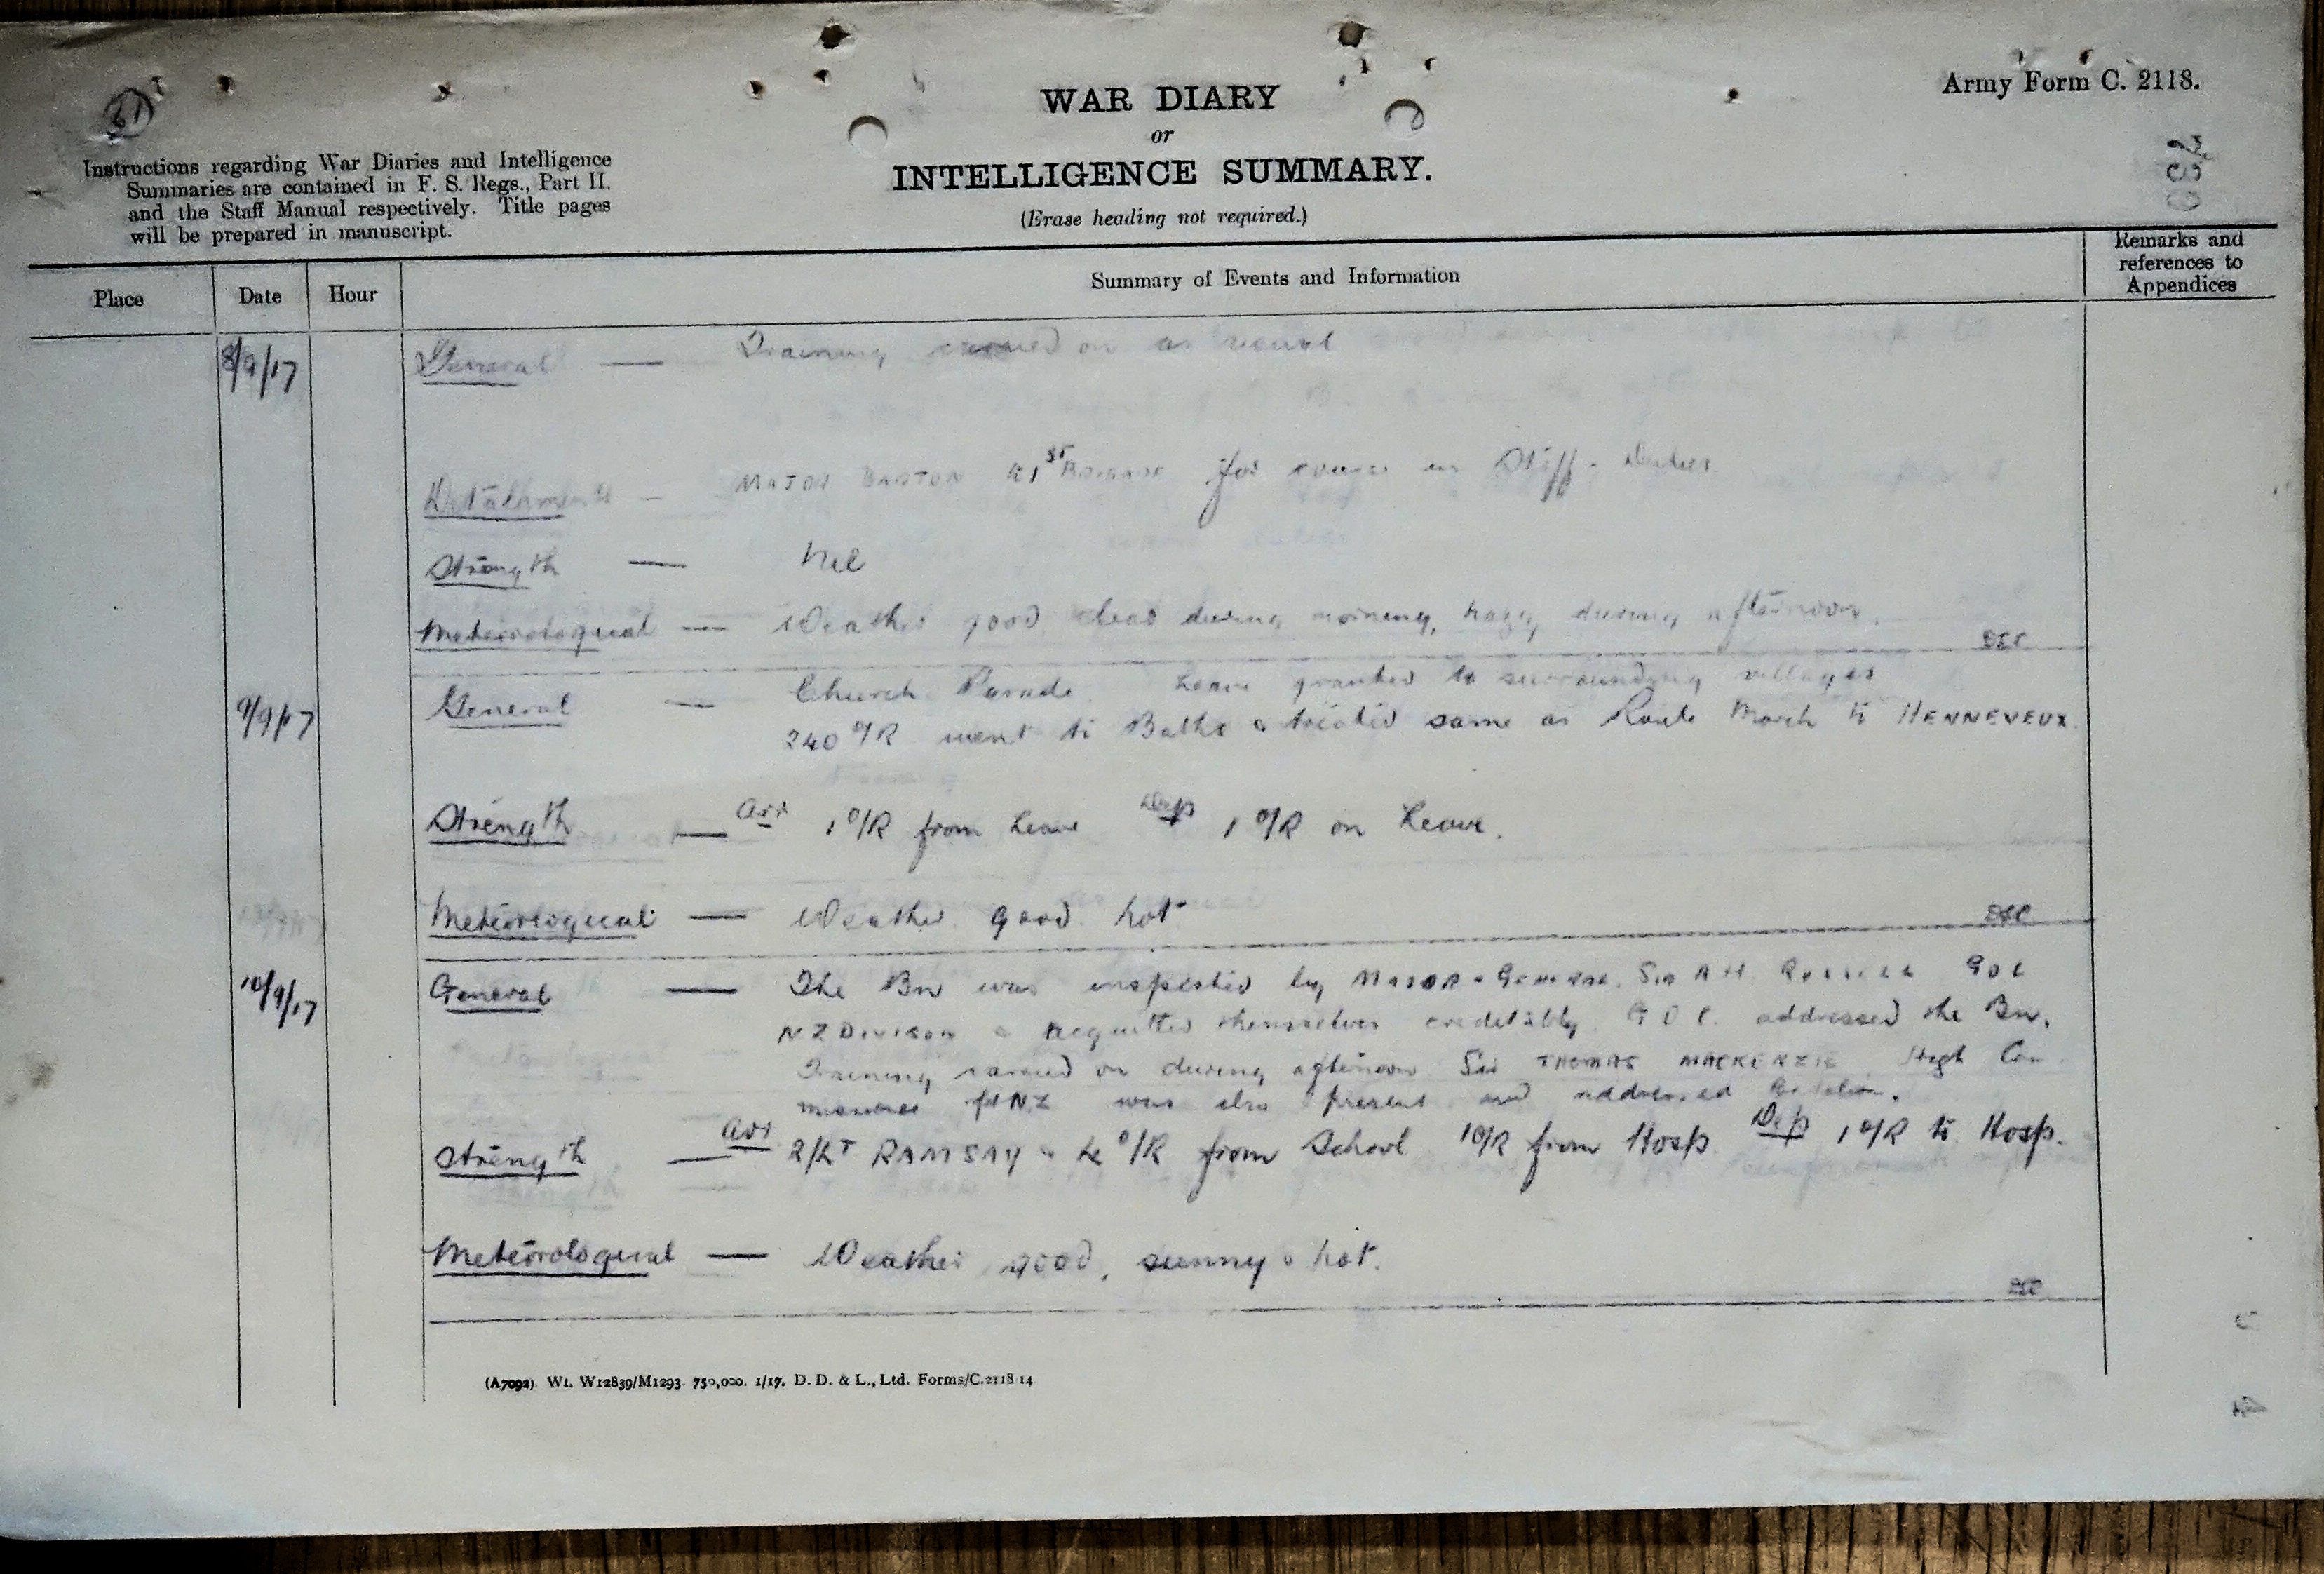 61
Army Form C. 2118.
WAR DIARY
or
INTELLIGENCE SUMMARY.
(Erase heading not required.)
Instructions regarding War Diaries and Intelligence
Summaries are contained in F. S. Regs., Part II.
and the Staff Manual respectively. Title pages
will be prepared in manuscript.
Place Date Hour Summary of Events and Information Remarks and references to Appendices
8/9/17 General — Training carried on as usual
Detachments — MAJOR BARTON to 1st BRIGADE for course in Staff-Duties.
Strength — Nil
Meteorological — Weather good clear during morning, hazy during afternoon.
9/9/17 General — Church Parade. Leave granted to surrounding villages
240 O/R went to Baths & treated same as Route March to HENNEVEUX.
Strength — Arr 1 O/R from Leave Dep 1 O/R on Leave.
Meteorological — Weather good hot
10/9/17 General — The Bn was inspected by MAJOR-GENERAL SIR A H RUSSELL GOC
NZ DIVISION & acquitted themselves creditably. G O C. addressed the Bn.
Training carried on during afternoon. Sir THOMAS MACKENZIE High Com
missioner for NZ was also present and addressed Battalion.
Strength — Arr 2/LT RAMSAY & 4 O/R from School 1 O/R from Hosp. Dep 1 O/R to Hosp.
Meteorological — Weather good, sunny & hot.
(A7092) Wt. W12839/M1293 750,000. 1/17. D. D. & L., Ltd. Forms/C.2118 14